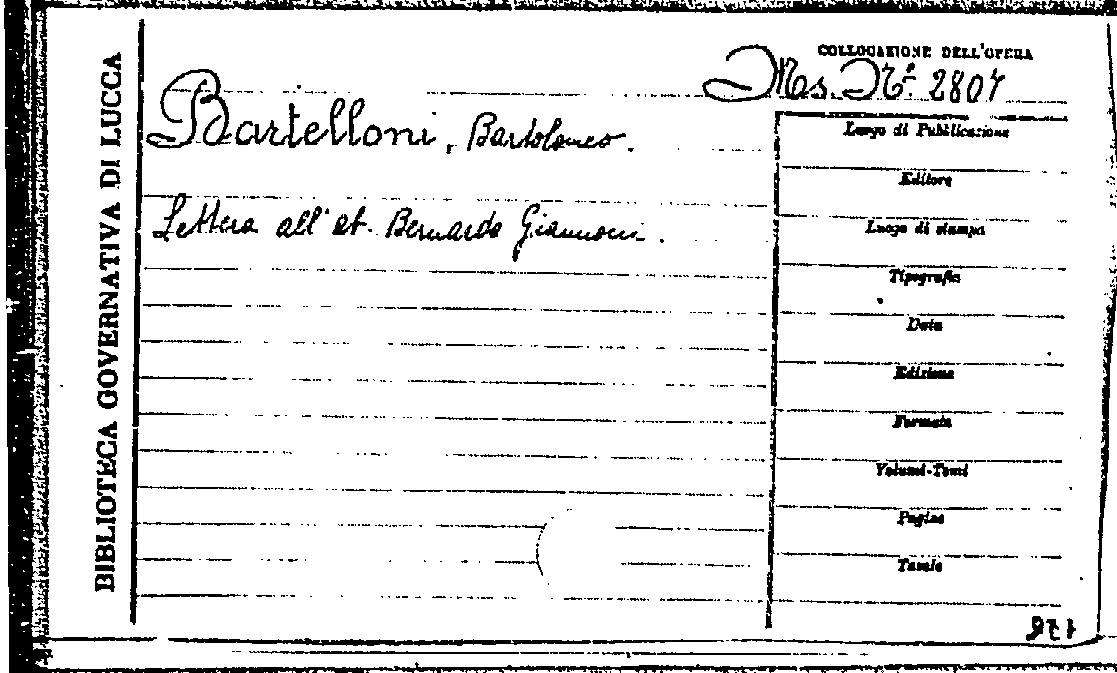 BIBLIOTECA GOVERNATIVA DI LUCCA
COLLOCAZIONE DELL'OPERA
Ms. N.º 2807
Bartelloni, Bartolomeo.
Lettera all'ab. Bernardo Giannoni.
Luogo di Pubblicazione
Editore
Luogo di stampa
Tipografia
Data
Edizione
Formato
Volumi-Tomi
Pagine
Tavole